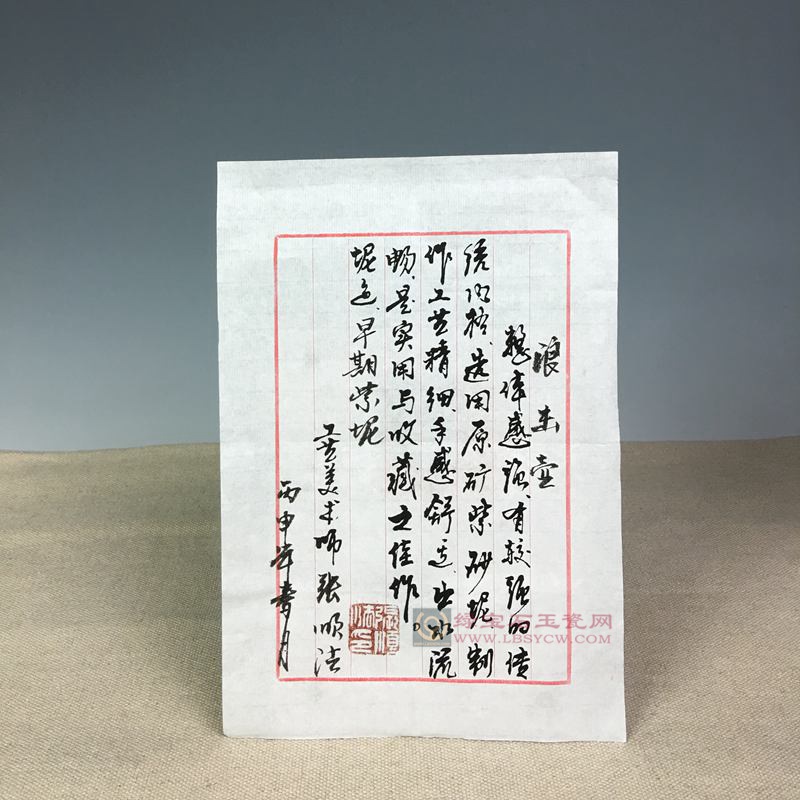 浪击壶
整体感强、有较强的传
统风格、选用原矿紫砂坭制
作工艺精细、手感舒适、出水流
畅、是实用与收藏之佳作。
坭色、早期紫坭
工艺美术师张顺法
丙申年
绿宝石玉瓷网
WWW.LBSYCW.COM